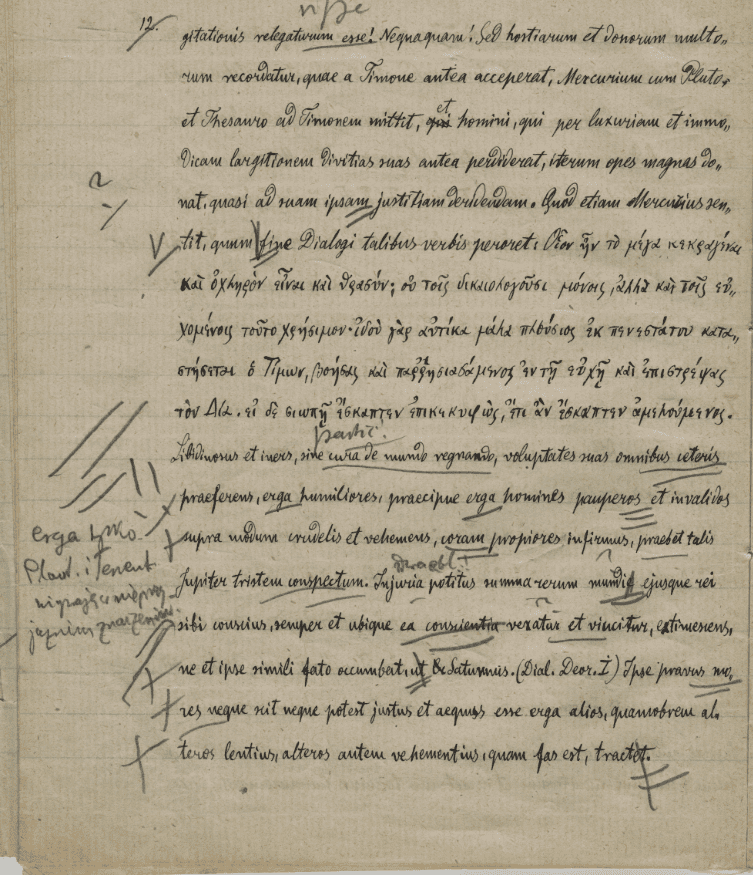 12.
gitationis relegaturum esse! Nequaquam! Sed hostiarum et donorum multo„
rum recordatur, quae a Timone antea acceperat, Mercurium cum Pluto„
et Thesauro ad Timonem mittit, et homini, qui per luxuriam et immo„
dicam largitionem divitias suas antea perdiderat, iterum opes magnas do„
nat, quasi ad suam ipsam justitiam deridendam. Quod etiam Mercurius sen„
?
tit, quum fine Dialogi talibus verbis peroret: Οἷον ἦν τὸ μέγα κεκραγέναι
καὶ ὀχληρὸν εἶναι καὶ θρασύν; οὐ τοῖς δικαιολογοῦσι μόνοις, ἀλλὰ καὶ τοῖς εὐ„
χομένοις τοῦτο χρήσιμον· ἰδού γὰρ αὐτίκα μάλα πλούσιος ἐκ πενεστάτου κατα„
στήσεται ὁ Τίμων, βοήσας καὶ παῤῥησιασάμενος ἐν τῇ εὐχῇ καὶ ἐπιστρέψας
τὸν Δία. εἰ δὲ σιωπῇ ἔσκαπτεν ἐπικεκυφὼς, ἔτι ἂν ἔσκαπτεν ἀμελούμενος.
Libidinosus et iners, sine cura de mundo regnando, voluptates suas omnibus ceteris
praeferens, erga humiliores, praecipue erga homines pauperos et invalidos
erga tylko
supra modum crudelis et vehemens, coram propiores infirmus, praebet talis
Plaut. i Terent.
Jupiter tristem conspectum. Injuria potitus summa rerum mundi ejusque rei
sibi conscius, semper et ubique ea conscientia vexatur et vincitur, extimescens,
ne et ipse simili fato occumbat, ut Saturnus. (Dial. Deor. I) Ipse pravus mo„
res neque scit neque potest justus et aequus esse erga alios, quamobrem al„
teros lentius, alteros autem vehementius, quam fas est, tractet.